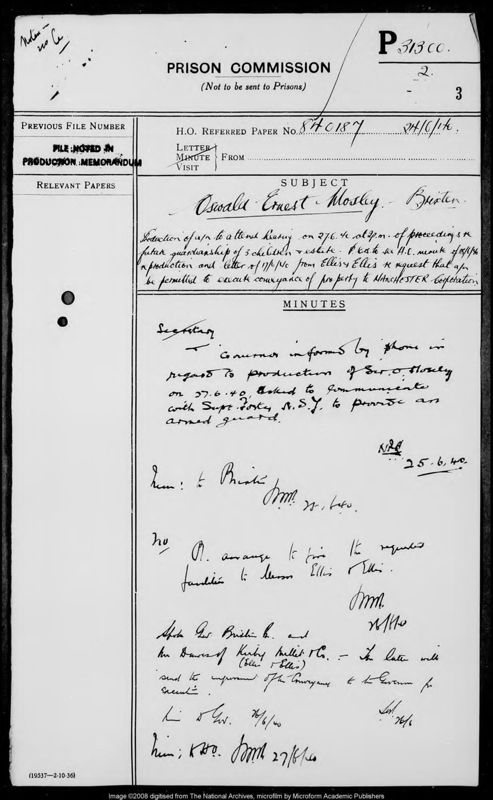 Notes -
no Co
P 313 CC.
2.
3
PRISON COMMISSION
(Not to be sent to Prisons)
PREVIOUS FILE NUMBER
FILE NOTED IN
PRODUCTION MEMORANDUM
RELEVANT PAPERS
H.O. REFERRED PAPER No. 840187 24/6/40.
LETTER
MINUTE
VISIT
FROM
SUBJECT
Oswald Ernest Mosley - Brixton
Production of a/n to attend hearing on 27.6.40 at 2 p.m. of proceedings re
future guardianship of 3 children & estate.
production and letter of 17/6/40 from Ellis & Ellis re request that a/n
be permitted to execute conveyance of property to MANCHESTER Corporation
MINUTES
Secretary
Governor informed by phone in
regard to production of Sir O. Mosley
on 27.6.40, asked to communicate
with Supt. N.S.Y. to provide an
armed guard.
25.6.40
to Brixton
No
R. arrange to give the requested
facilities to Messrs Ellis & Ellis.
Spoke Gov Brixton and
Mr Davies of Kirby Millet & Co. - The latter will
(Ellis & Ellis)
send the engrossment of the Conveyance to the Governor for
execution.
Gov. 26/6/40
26/6
27/6/40
(19537-2-10-36)
Image ©2008 digitised from The National Archives, microfilm by Microform Academic Publishers